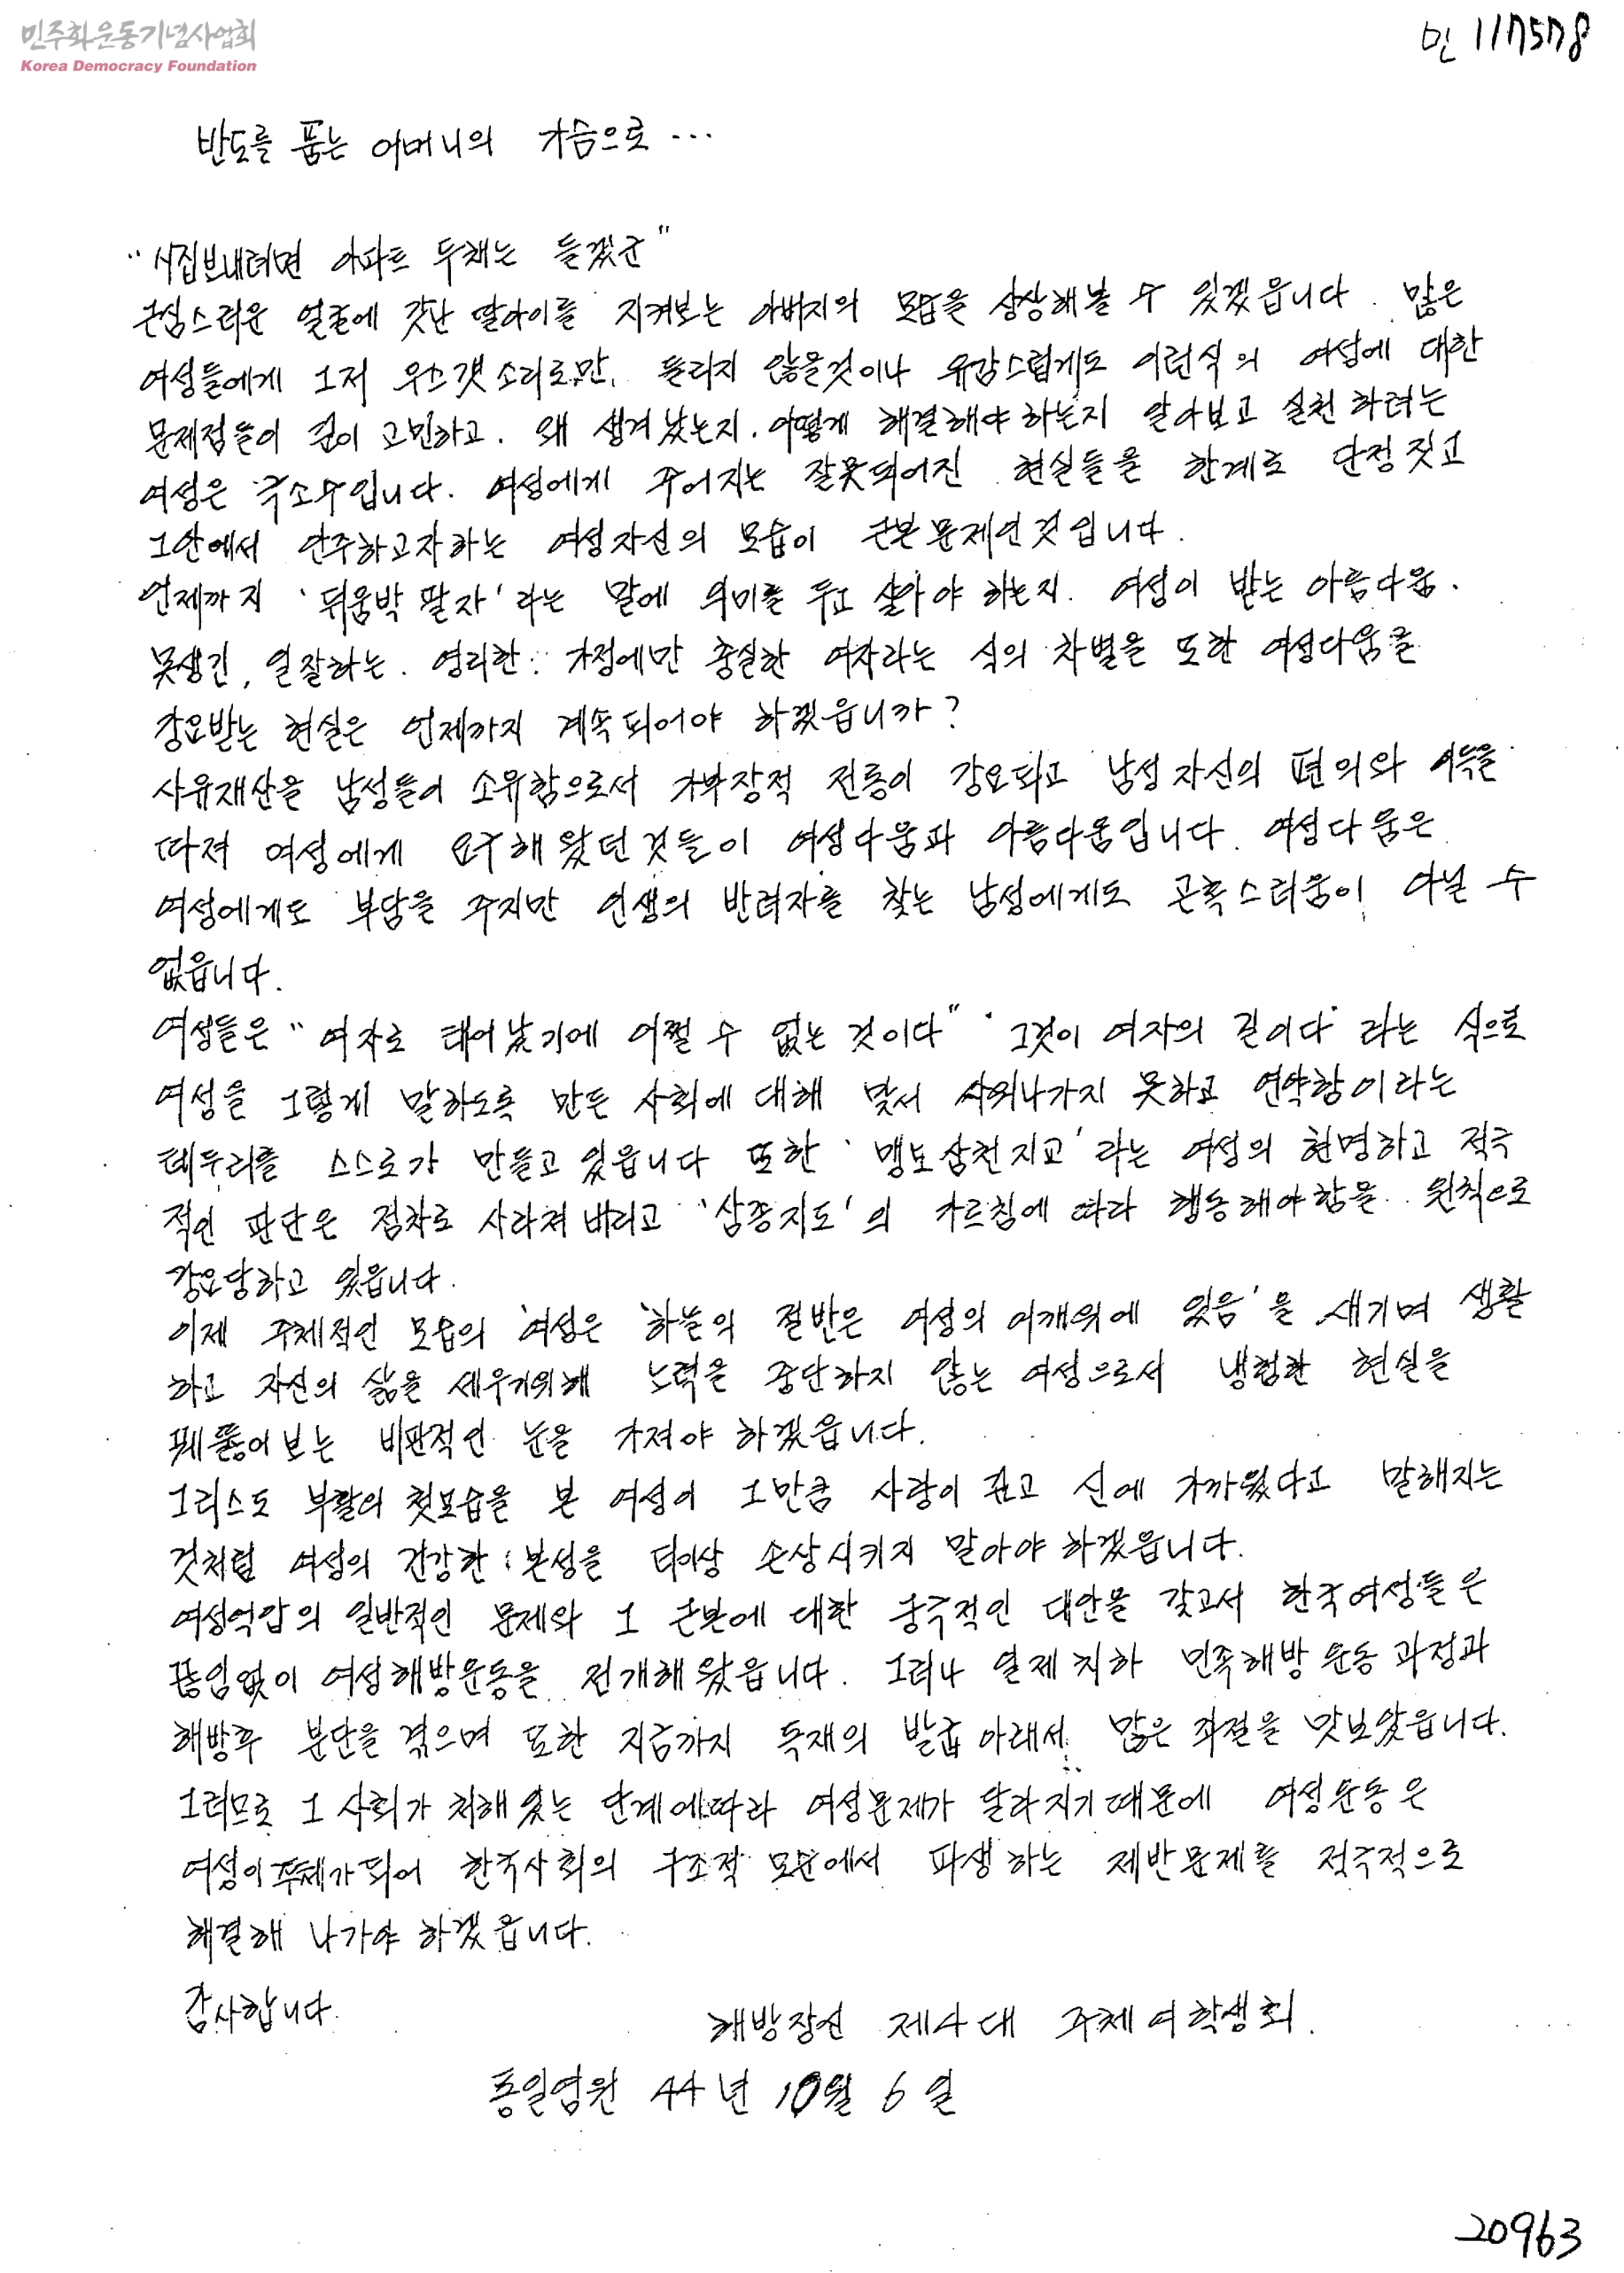 민주화운동기념사업회
Korea Democracy Foundation
민 117578
반도를 품는 어머니의 가슴으로 ...
"시집보내려면 아파트 두채는 들겠군"
근심스러운 얼굴에 갓난 딸아이를 지켜보는 아버지의 모습을 상상해볼 수 있겠읍니다. 많은
여성들에게 그저 우스갯 소리로만 들리지 않을것이나 유감스럽게도 이런식의 여성에 대한
문제점들이 깊이 고민하고. 왜 생겨났는지. 어떻게 해결해야 하는지 알아보고 실천 하려는
여성은 극소수입니다. 여성에게 주어지는 잘못되어진 현실들을 한계로 단정 짓고
그안에서 안주하고자하는 여성자신의 모습이 근본문제인것입니다.
언제까지 '뒤움박 팔자'라는 말에 의미를 두고 살아야 하는지. 여성이 받는 아름다움.
못생긴, 일잘하는. 영리한. 가정에만 충실한 여자라는 식의 차별을 또한 여성다움을
강요받는 현실은 언제까지 계속되어야 하겠읍니까?
사유재산을 남성들이 소유함으로서 가부장적 전통이 강요되고 남성자신의 편의와 이득을
따져 여성에게 요구해왔던것들이 여성다움과 아름다움입니다. 여성다움은
여성에게도 부담을 주지만 인생의 반려자를 찾는 남성에게도 곤혹스러움이 아닐 수
없읍니다.
여성들은 "여자로 태어났기에 어쩔 수 없는 것이다" '그것이 여자의 길이다' 라는 식으로
여성을 그렇게 말하도록 만든 사회에 대해 맞서 싸워나가지 못하고 연약함이라는
테두리를 스스로가 만들고 있읍니다 또한 '맹모삼천지교'라는 여성의 현명하고 적극
적인 판단은 점차로 사라져 버리고 '삼종지도'의 가르침에 따라 행동해야함을 원칙으로
강요당하고 있읍니다.
이제 주체적인 모습의 여성은 '하늘의 절반은 여성의 어깨위에 있음'을 새기며 생활
하고 자신의 삶을 세우기위해 노력을 중단하지 않는 여성으로서 냉험한 현실을
꿰뚫어보는 비판적인 눈을 가져야 하겠읍니다.
그리스도 부활의 첫모습을 본 여성이 그만큼 사랑이 깊고 신에 가까웠다고 말해지는
것처럼 여성의 건강한 본성을 더이상 손상시키지 말아야 하겠읍니다.
여성억압의 일반적인 문제와 그 근본에 대한 궁극적인 대안을 갖고서 한국여성들은
끊임없이 여성해방운동을 전개해왔읍니다. 그러나 일제치하 민족해방 운동 과정과
해방후 분단을 겪으며 또한 지금까지 독재의 발굽아래서 많은 좌절을 맛보았읍니다.
그러므로 그 사회가 처해있는 단계에따라 여성문제가 달라지기때문에 여성운동은
여성이 주체가되어 한국사회의 구조적 모순에서 파생하는 제반문제를 적극적으로
해결해 나가야 하겠읍니다.
감사합니다.
해방장신 제4대 주체여학생회.
통일염원 44년 10월 6일
20963